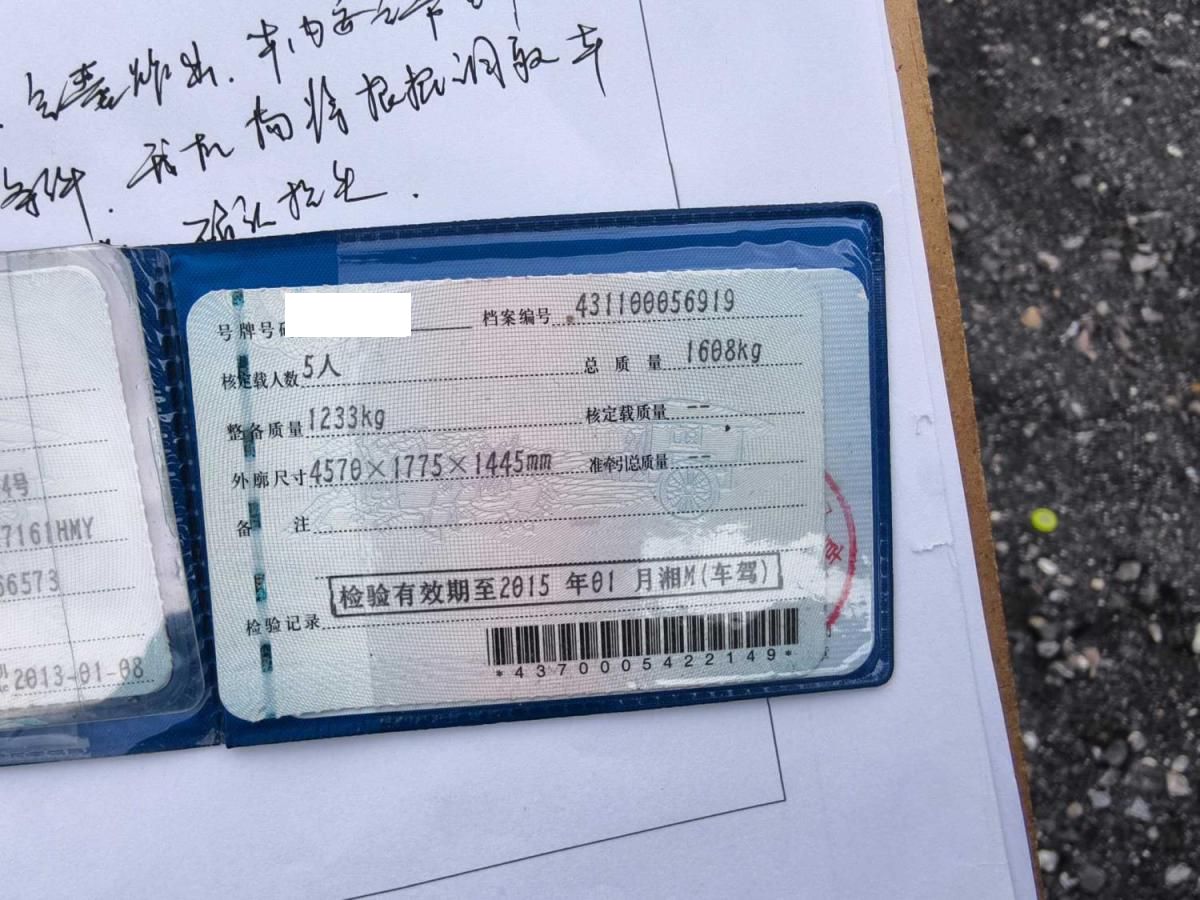 条件. 我机构将根据调取车
号牌号
档案编号 431100056919
核定载人数 5人
总质量 1608kg
整备质量 1233kg
核定载质量 --
外廓尺寸 4570×1775×1445mm
准牵引总质量 --
备注
检验有效期至2015年01月湘M(车驾)
检验记录
*4370005422149*
4号
7161HMY
66573
2013-01-08